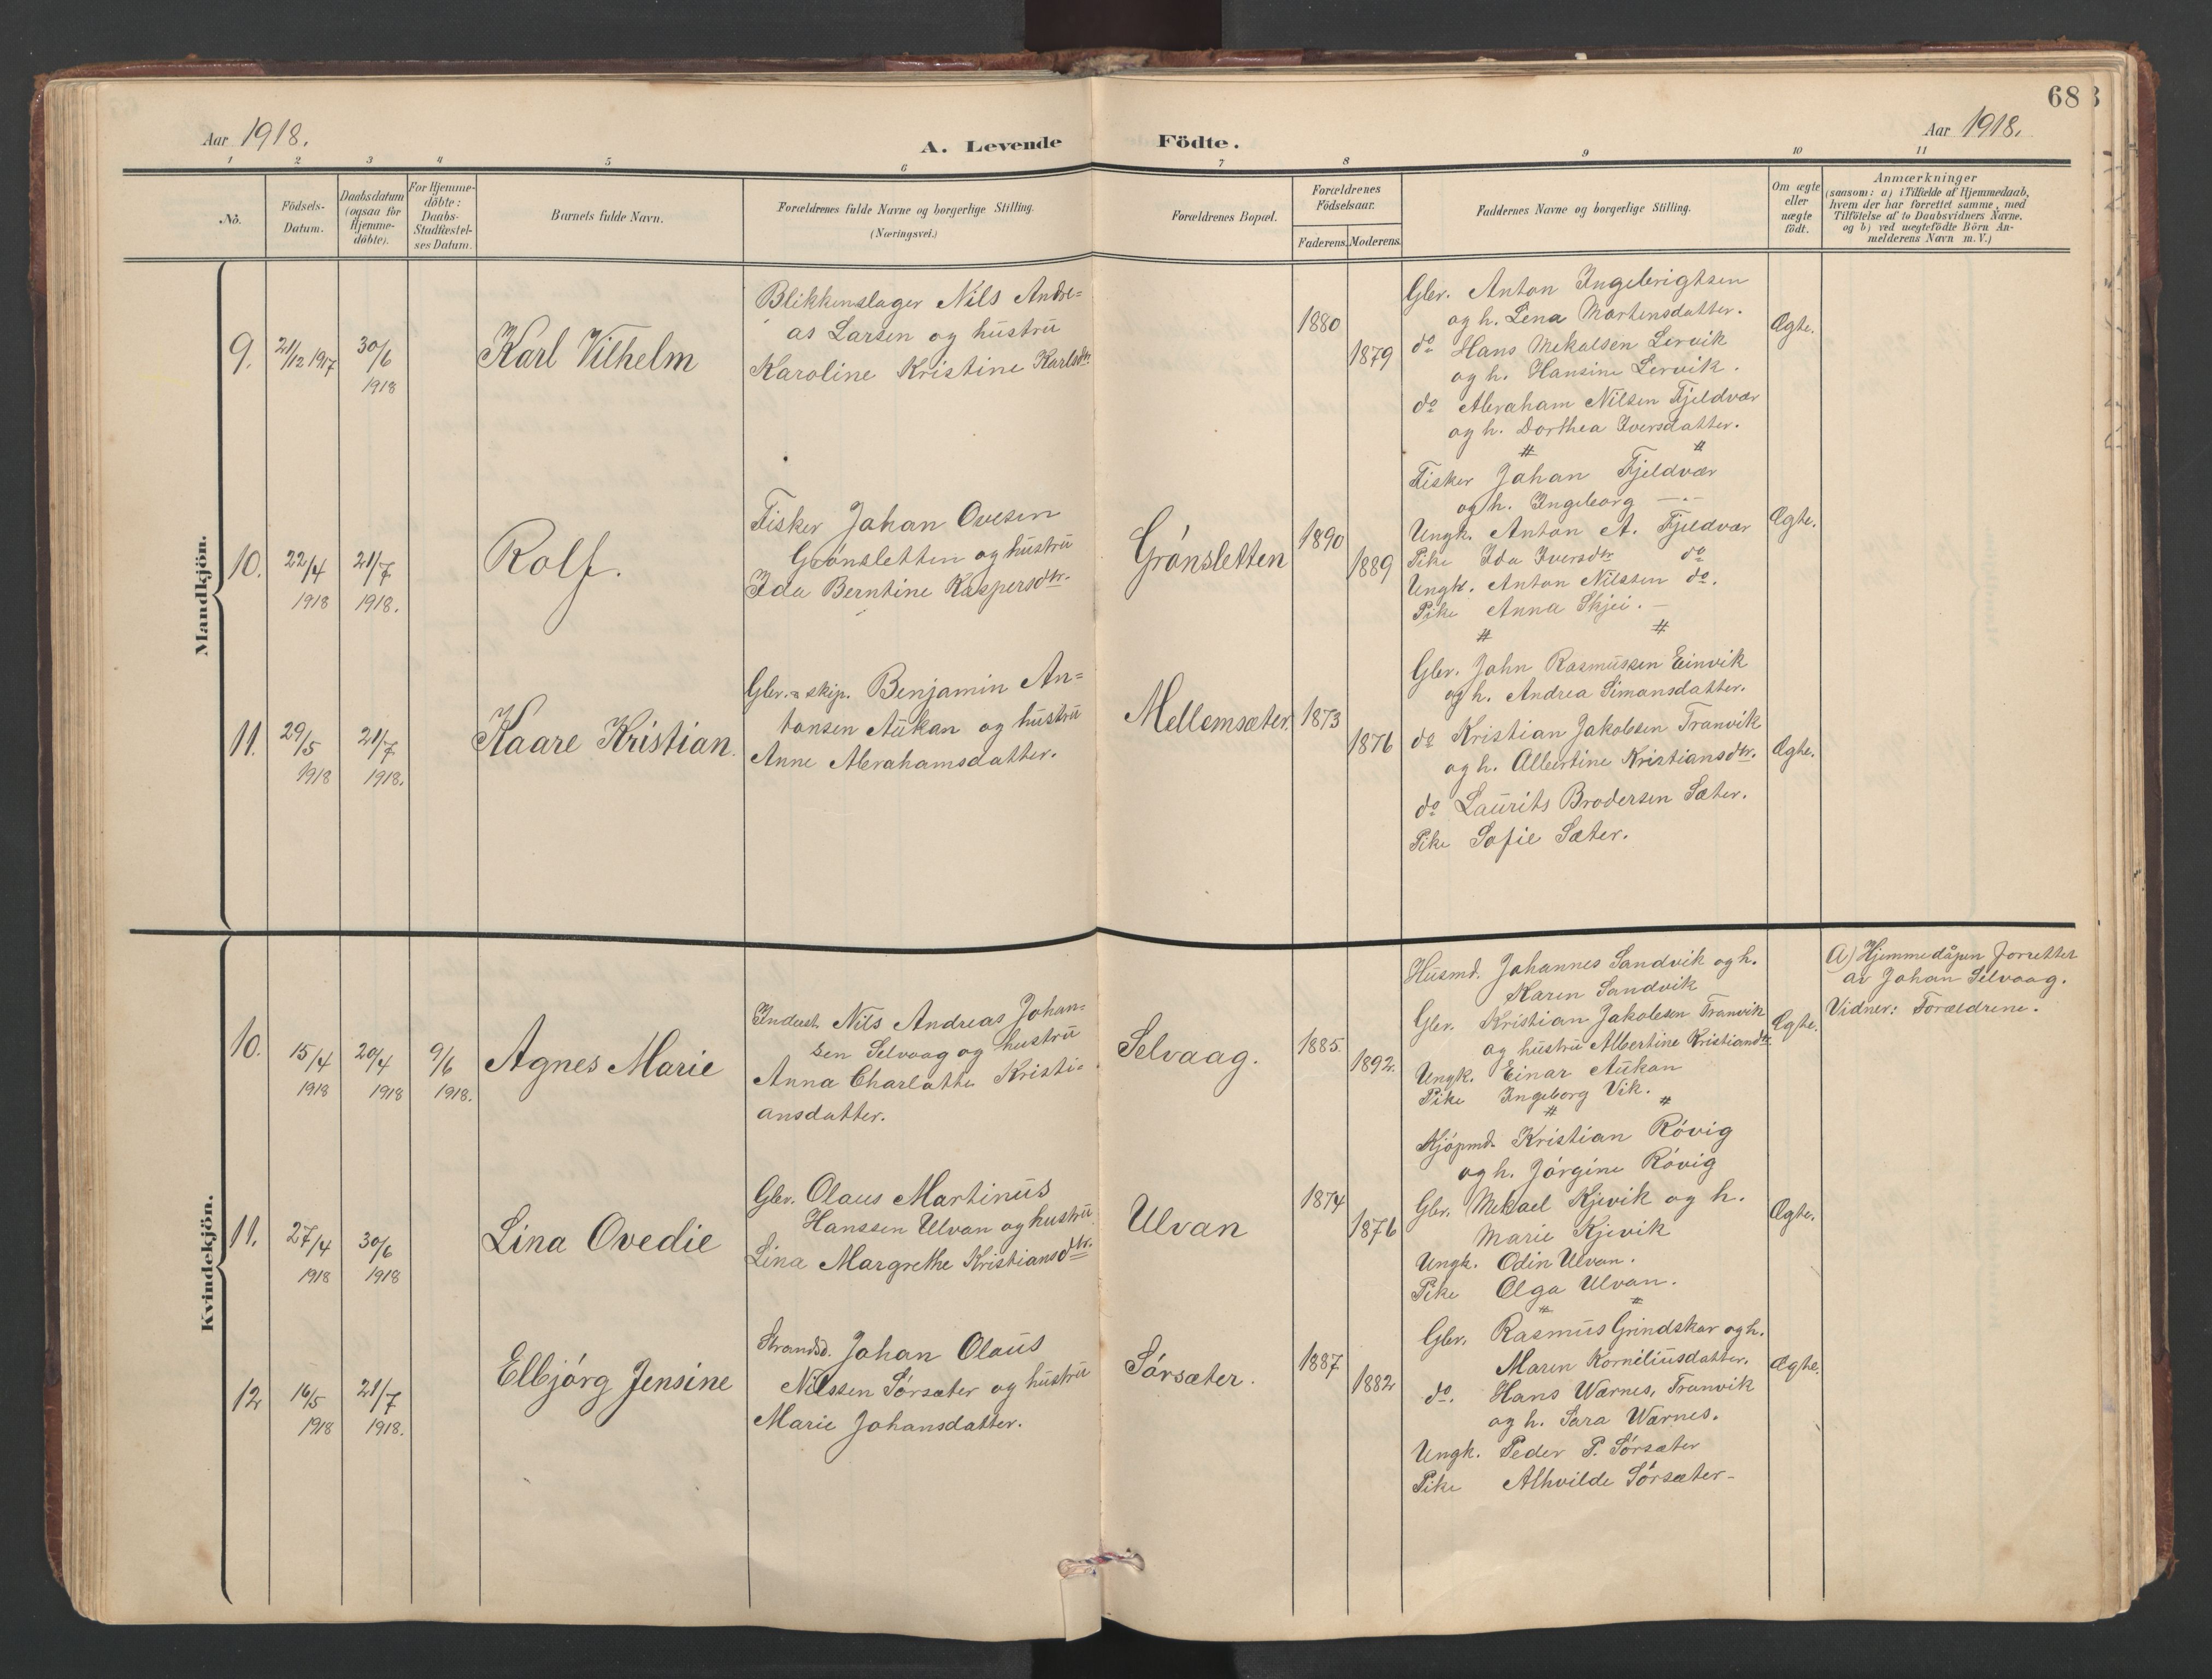 68
Aar 1918.
A. Levende Födte.
Aar 1918.
1 2 3 4 5 6 7 8 9 10 11
No.
Födsels-
Datum.
Daabsdatum
(ogsaa for
Hjemme-
döbte).
For Hjemme-
döbte:
Daabs-
Stadfæstel-
ses Datum.
Barnets fulde Navn.
Forældrenes fulde Navne og borgerlige Stilling.
(Næringsvei.)
Forældrenes Bopæl.
Forældrenes
Födselsaar.
Faderens. Moderens.
Faddernes Navne og borgerlige Stilling.
Om ægte
eller
uægte
født.
Anmærkninger
(saasom: a) i Tilfælde af Hjemmedaab,
hvem der har forrettet samme, med
Tilföielse af to Daabsvidners Navne.
og b) ved uægtefödte Börn An-
melderens Navn m. V.)
Mandkjön.
9.
21/12 1917
30/6
1918
Karl Vilhelm
Blikkenslager Nils Andre-
as Larsen og hustru
Karoline Kristine Karlsdtr.
1880
1879
Gbr. Anton Ingebrigtsen
og h. Lena Martensdatter.
do Hans Mekalsen Lervik
og h. Hansine Lervik.
do Abraham Nilsen Fjeldvær
og h. Dorthea Iversdatter.
# #
Ægte.
10.
22/4
1918
21/7
1918.
Rolf.
Fisker Johan Ovesen
Grönsletten og hustru
Ida Berntine Kaspersdtr.
Grönsletten
1890
1889
Fisker Johan Fjeldvær
og h. Ingeborg —"—
Ungk. Anton A. Fjeldvær
Pike Ida Iversdtr do
Ungk. Anton Nilssen do.
Pike Anna Skjei. —
# #
Ægte.
11.
29/5
1918
21/7
1918.
Kaare Kristian.
Gbr. & skip. Benjamin An-
tonsen Aukan og hustru
Anne Abrahamsdatter.
Mellemsæter.
1873
1876
Gbr. John Rasmussen Einvik
og h. Andrea Simonsdatter.
do Kristian Jakobsen Tranvik
og h. Albertine Kristiansdtr.
do Laurits Brodersen Sæter.
Pike Sofie Sæter.
Ægte.
Kvindekjön.
10.
15/4
1918
20/4
1918
9/6
1918.
Agnes Marie
Inderst. Nils Andreas Johan-
sen Selvaag og hustru
Anna Charlotte Kristi-
ansdatter.
Selvaag.
1885.
1892.
Husmd. Johannes Sandvik og h.
Karen Sandvik
Gbr. Kristian Jakobsen Tranvik
og hustru Albertine Kristiansdtr.
Ungk. Einar Aukan
Pike Ingeborg Vik.
# #
Ægte.
A) Hjemmedåpen forrettet
av Johan Selvaag.
Vidner: Forældrene.
11.
27/4
1918
30/6
1918
Lina Ovedie
Gbr. Olaus Martinus
Hanssen Ulvan og hustru
Lina Margrethe Kristiansdtr.
Ulvan
1874
1876
Kjöpmd. Kristian Rövig
og h. Jörgine Rövig
Gbr. Mekael Kjevik og h.
Marie Kjevik
Ungk. Odin Ulvan.
Pike Olga Ulvan.
# #
Ægte.
12
16/5
1918
21/7
1918.
Elbjörg Jensine
Strandsd. Johan Olaus
Nilssen Sörsæter og hustru
Marie Johansdatter.
Sörsæter.
1887
1882
Gbr. Rasmus Grindskar og h.
Maren Korneliusdatter.
do. Hans Wærnes, Tranvik
og h. Sara Wærnes.
Ungk. Peder P. Sörsæter
Pike Alhvilde Sörsæter—
Ægte.